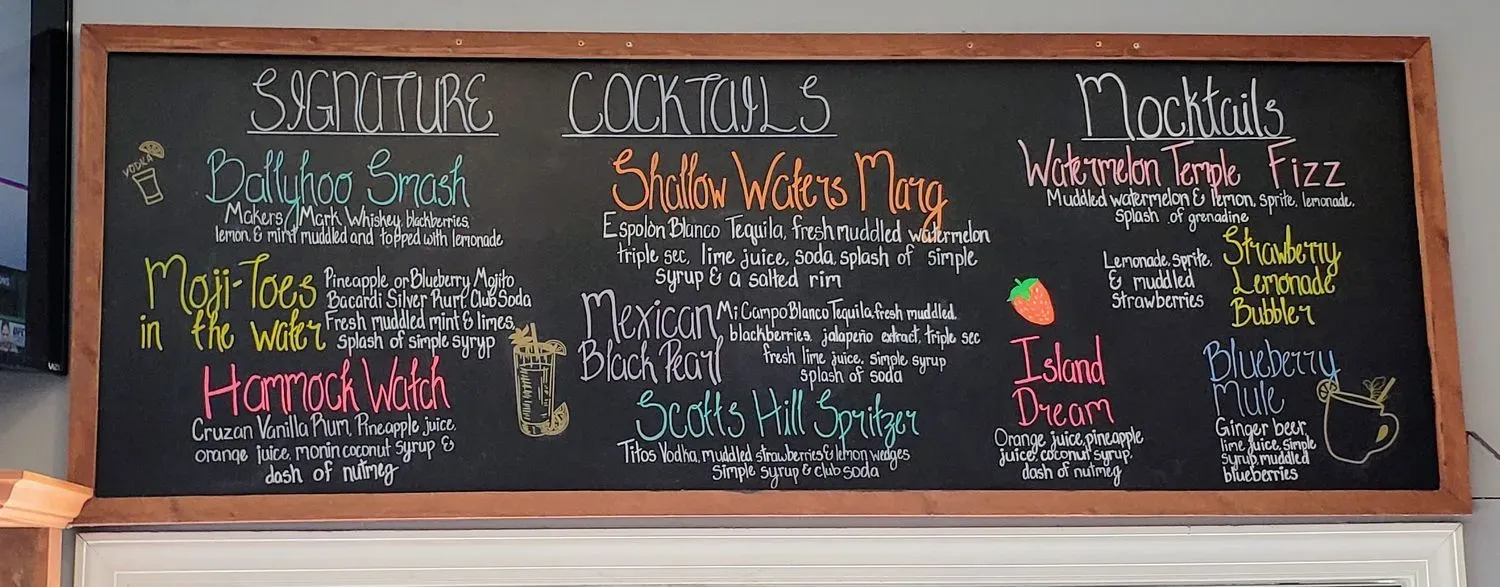 SIGNATURE COCKTAILS
VODKA
Ballyhoo Smash
Makers Mark Whiskey, blackberries,
lemon & mint muddled and topped with lemonade
Moji-Toes
in the water
Pineapple or Blueberry Mojito
Bacardi Silver Rum, Club Soda
Fresh muddled mint & limes,
splash of simple syryp
Hammock Watch
Cruzan Vanilla Rum, Pineapple juice,
orange juice, monin coconut syrup &
dash of nutmeg
Shallow Waters Marg
Espolòn Blanco Tequila, fresh muddled watermelon
triple sec, lime juice, soda, splash of simple
syrup & a salted rim
Mexican
Black Pearl
Mi Campo Blanco Tequila, fresh muddled,
blackberries, jalapeño extract, triple sec
fresh lime juice, simple syrup
splash of soda
Scotts Hill Spritzer
Titos Vodha, muddled strawberries & lemon wedges
simple syrup & club soda
Mocktails
Watermelon Temple Fizz
Muddled watermelon & lemon, sprite, lemonade,
splash of grenadine
Strawberry
Lemonade
Bubbler
Lemonade, sprite,
& muddled
strawberries
Island
Dream
Orange juice, pineapple
juice, coconut syrup,
dash of nutmeg
Blueberry
Mule
Ginger beer,
lime juice, simple
syrup, muddled
blueberries